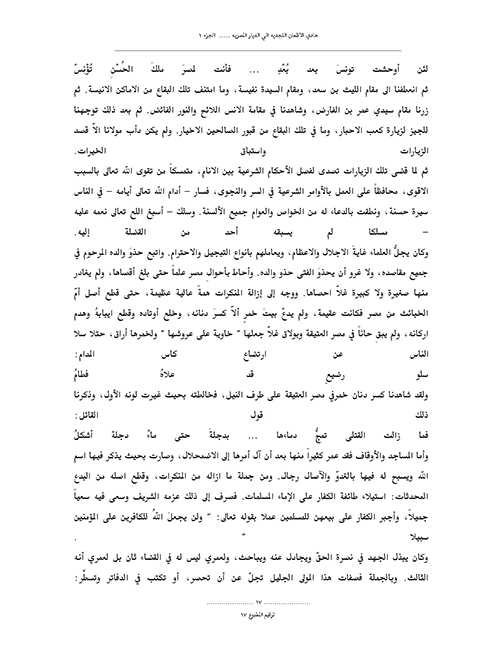 حادي الأظعان النجدية الى الديار المصرية ..... الجزء ١
لئن أوحشت تونسَ بعد بُعْدٍ ... فأنت لمصرَ ملكَ الحُسْنِ تُؤْنِسْ
ثم انعطفنا الى مقام الليث بن سعد، ومقام السيدة نفيسة، وما امتنف تلك البقاع من الاماكن الانيسة. ثم
زرنا مقام سيدي عمر بن الفارض، وشاهدنا في مقامة الانس اللائح والنور الفائض. ثم بعد ذلك توجهنا
للجيز لزيارة كعب الاحبار، وما في تلك البقاع من قبور الصالحين الاخيار. ولم يكن دأب مولانا الاّ قصد
الزيارات واستباق الخيرات.
ثم لما قضى تلك الزيارات تصدى لفصل الأحكام الشرعية بين الانام، متمسكاً من تقوى الله تعالى بالسبب
الاقوى، محافظاً على العمل بالأوامر الشرعية في السر والنجوى، فسار – أدام الله تعالى أيامه – في الناس
سيرة حسنة، ونطقت بالدعاء له من الخواص والعوام جميع الألسنة. وسلك – أسبغ اللع تعالى نعمه عليه
– مسلكا لم يسبقه أحد من القضلة إليه.
وكان يجلُّ العلماء غايةَ الاجلال والاعظام، ويعاملهم بانواع التبجيل والاحترام. واتبع حذوَ والده المرحوم في
جميع مقاصده، ولا غرو أن يحذوَ الفتى حذو والده. وأحاط بأحوال مصر علماً حتى بلغ أقساها، ولم يغادر
منها صغيرة ولا كبيرة غلاّ احصاها. ووجه إلى إزالة المنكرات همةً عالية عظيمة، حتى قطع أصل أمّ
الخبائث من مصر فكانت عقيمة، ولم يدعْ بيتَ خمرٍ ألاّ كسرَ دنانه، وخلع أوتاده وقطع ابيابهُ وهدم
اركانه، ولم يبق حاناً في مصر العتيقة وبولاق غلاّ جعلها " خاوية على عروشها " ولخمرها أراق، حتلا سلا
الناس عن ارتضاع كاس المدام:
سلو رضيعٍ قد علاهُ فطامُ
ولقد شاهدنا كسر دنان خمرفي مصر العتيقة على طرف النيل، فخالطته بحيث غيرت لونه الأول، وذكرنا
ذلك قول القائل:
فما زالت القتلى تمجُّ دماءها ... بدجلةَ حتى ماءُ دجلة أشكلُ
وأما المساجد والأوقاف فقد عمر كثيراً منها بعد أن آل أمرها إلى الاضمحلال، وصارت بحيث يذكر فيها اسم
الله ويسبح له فيها بالغدوّ والآصال رجال. ومن جملة ما ازاله من المنكرات، وقطع اصله من البدع
المحدثات: استيلاء طائفة الكفار على الإماء المسلمات. فصرف إلى ذلك عزمه الشريف وسعى فيه سعياً
جميلاً، وأجبر الكفار على بيعهن للمسلمين عملا بقوله تعالى: " ولن يجعلَ اللهُ للكافرين على المؤمنين
سبيلا " .
وكان يبذل الجهد في نصرة الحقّ ويجادل عنه ويباحث، ولعمري ليس له في القضاء ثان بل لعمري أنه
الثالث. وبالجملة فصفات هذا المولى الجليل تجلّ عن أن تحصر، أو تكتب في الدفاتر وتسطَّر:
....................... ١٧ .......................
ترقيم المطبوع ١٧